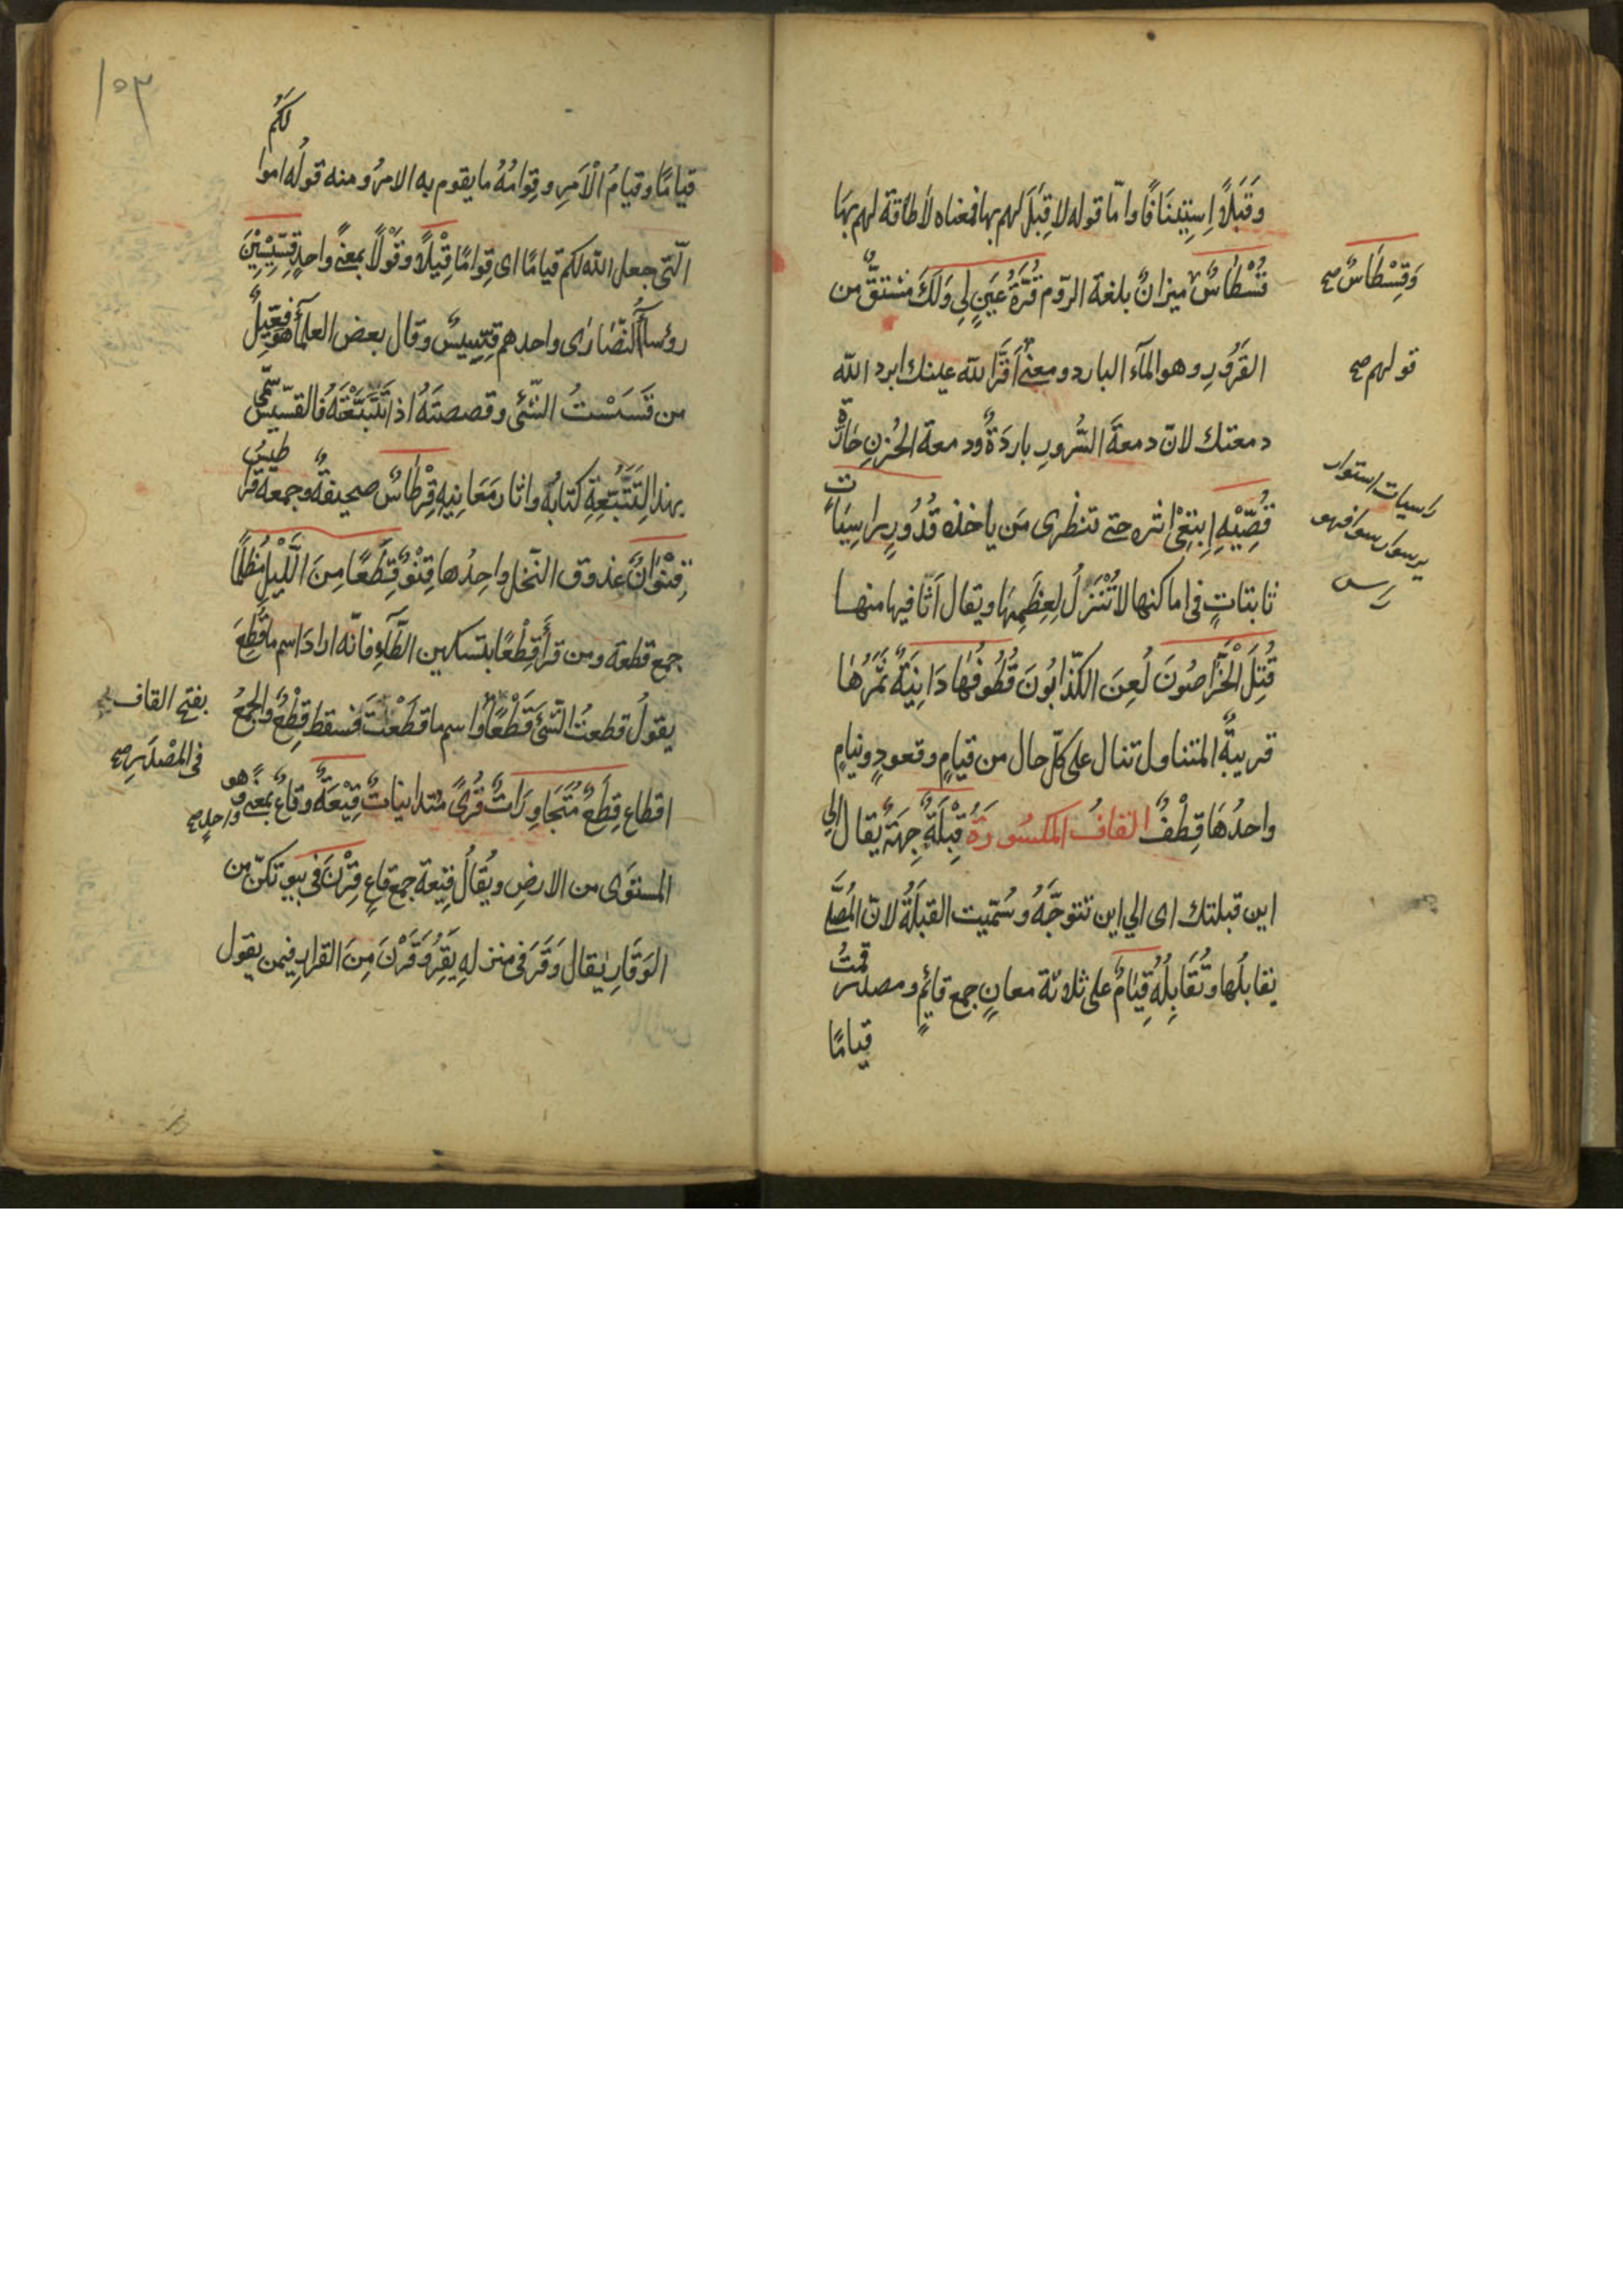 وَقَبَلًا اِسْتِينَافًا وامّا قوله لا قِبَلَ لهم بها فمعناه لاطاقة لهم بهَا
قُسْطَاسٌ ميزانٌ بلغة الرّوم قُرَّةُ عَيْنٍ لِي وَلَكَ مشتقٌّ من
وَقِسْطَاسٌ صح
القَرُورِ وهو المآء البارد ومعنى اَقَرَّ الله عينك ابرد الله
قولهم صح
دمعتك لانّ دمعةَ السُّرورِ باردَةٌ ودمعة الحُزنِ حَارّةٌ
قُصِّيْهِ اِبْتَغِى اثره حتى تنظرى مَن ياخذه قُدُورٍ رَاسِيَاتٍ
راسيات استوار
ثابتاتٍ فى اماكنها لا تُنْزَلُ لِعِظَمِهَا ويقال اَثافيها منهـا
قُتِلَ الْخَرَّاصُونَ لُعِنَ الكذّابُونَ قُطُوفُهَا دَانِيَةٌ ثَمَرُهَا
قريبةُ المتناول تنال على كلّ حال من قيامٍ وقعودٍ ونيامٍ
واحدُهَا قِطْفٌ القافُ المكسُورَةُ قِبْلَةٌ جِهَةٌ يقال الي
اين قبلتك اى الي اين تتوجّهُ وسُمّيت القبلَةُ لانّ المُصَلّي
يقابلُها وتُقَابِلُهُ قِيَامٌ على ثلاثة معانٍ جمع قائمٍ ومصدر قمتُ
قيامًا
١٥٣
قيامًا وقيامُ الْاَمرِ وقِوامُهُ ما يقوم به الامرُ ومنه قولُه اموالكُم
الّتى جعل الله لكم قيامًا اى قِوامًا قِيْلًا وقَوْلًا بمعنًى واحدٍ قِسّيْسِيْنَ
رؤسآءُ النّصَارٰى واحدهم قِسّيسٌ وقال بعض العلمآء هو فِعّيلٌ
من قَسَسْتُ الشّئ وقصصتَهُ اذا تَتَبَّعْتَهُ فالقسّيس سمّى
بهذا لِتَتَبُّعِهِ كتابَهُ واثار مَعَانِيهِ قِرْطَاسٌ صحيفةٌ وجمعه قراطيسُ
قِنْوَانٌ عذوق النّخل واحِدُها قِنْوٌ قِطَعًا مِنَ الَّلْيلِ مُظلِمًا
جمع قطعة ومن قرأَ قِطْعًا بتسكين الطّآءِ فانّه ارادَ اسم ما قُطِعَ
يقولُ قطعتُ الشّئَ قَطْعًا واسم ما قَطَعْتَ فسقط قِطْعٌ والجمعُ
بفتح القاف
فى المَصْدَرِ صح
اقطاع قِطَعٌ مُتَجَاوِرَاتٌ قُرًى مُتدانياتٌ قِيْعَةٌ وقاعٌ بمعنًى وهو
واحدٍ صح
المستوَى من الارضِ ويُقالُ قيعة جمع قاعٍ قِرْنَ فى بيوتكنّ من
الوَقَارِ يُقال وَقَرَ فى منزلِهِ يَقِرُ وَقَرْنَ مِنَ القرارِ فيمن يقول